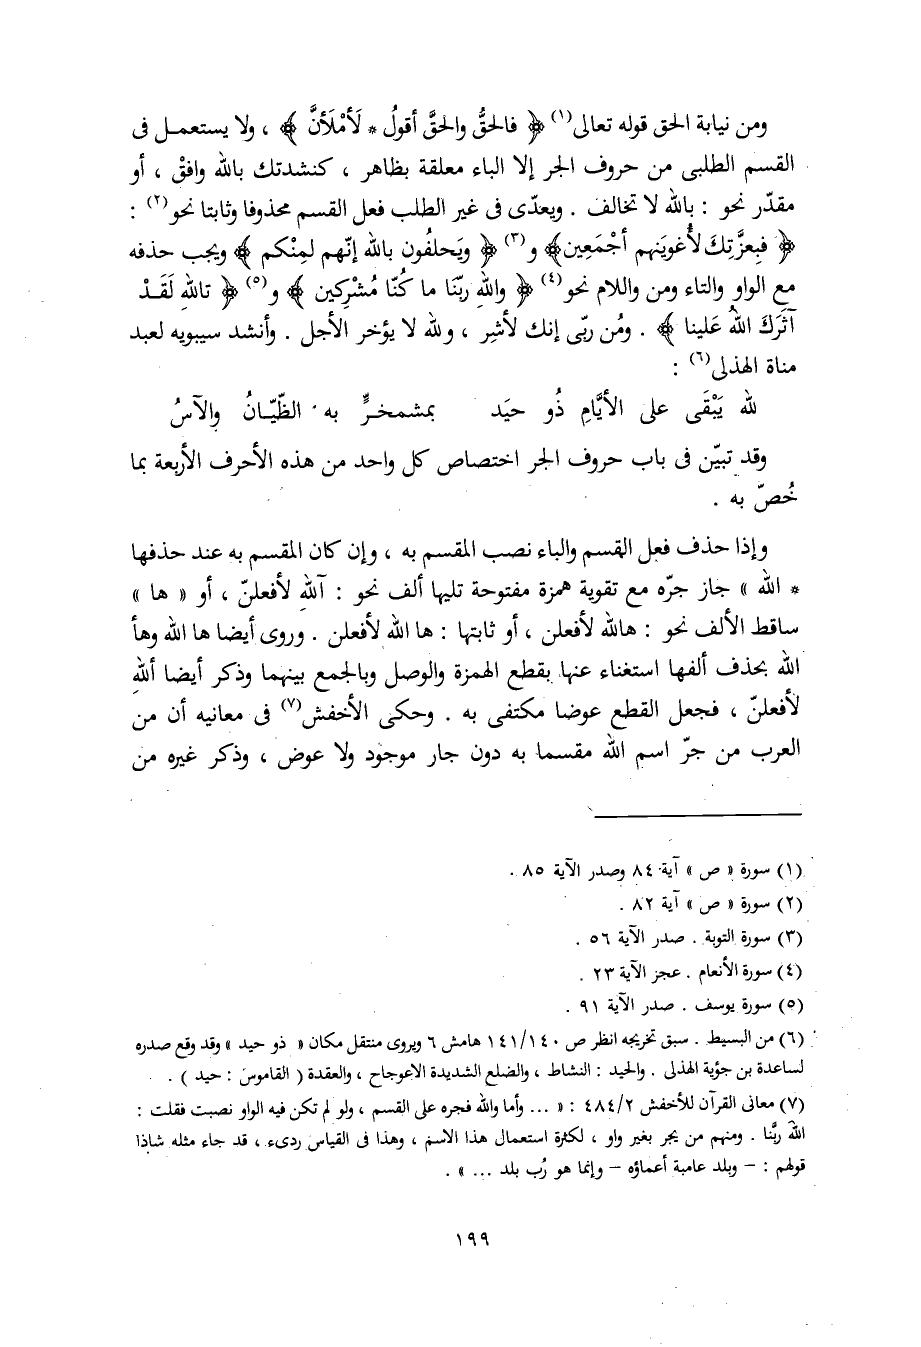 ومن نيابة الحق قوله تعالى(١) ﴿ فالحقُّ والحقَّ أقولُ * لَأمْلَأنَّ ﴾ ، ولا يستعمل فى
القسم الطلبى من حروف الجر إلا الباء معلقة بظاهر ، كنشدتك بالله وافقْ ، أو
مقدّر نحو : بالله لا تخالف . ويعدّى فى غير الطلب فعل القسم محذوفا وثابتا نحو(٢) :
﴿ فبِعزَّتِكَ لأُغويَنهم أجْمَعِين﴾ و(٣) ﴿ ويَحلفُون بالله إنّهم لمِنْكم ﴾ ويجب حذفه
مع الواو والتاء ومن واللام نحو(٤) ﴿ واللهِ ربّنَا ما كُنّا مُشْرِكين ﴾ و(٥) ﴿ تاللهِ لَقَدْ
آثَرَكَ اللهُ عَلينا ﴾ . ومُن ربّى إنك لأشِر ، ولله لا يؤخر الأجل . وأنشد سيبويه لعبد
مناة الهذلى(٦) :
لله يَبْقَى على الأيَّامِ ذُو حيَد بمشمخرٍّ به الظّيّانُ والآسُ
وقد تبيّن فى باب حروف الجر اختصاص كل واحد من هذه الأحرف الأربعة بما
خُصّ به .
وإذا حذف فعل القسم والباء نصب المقسم به ، وإن كان المقسم به عند حذفها
* الله » جاز جرّه مع تقوية همزة مفتوحة تليها ألف نحو : آللهِ لأفعلنّ ، أو « ها »
ساقط الألف نحو : هالله لأفعلن ، أو ثابتها : ها الله لأفعلن . وروى أيضا ها الله وهأ
الله بحذف ألفها استغناء عنها بقطع الهمزة والوصل وبالجمع بينهما وذكر أيضا أللهِ
لأفعلنّ ، فجعل القطع عوضا مكتفى به . وحكى الأخفش(٧) فى معانيه أن من
العرب من جرّ اسم الله مقسما به دون جار موجود ولا عوض ، وذكر غيره من
(١) سورة « ص » آية ٨٤ وصدر الآية ٨٥ .
(٢) سورة « ص » آية ٨٢ .
(٣) سورة التوبة . صدر الآية ٥٦ .
(٤) سورة الأنعام . عجز الآية ٢٣ .
(٥) سورة يوسف . صدر الآية ٩١ .
(٦) من البسيط . سبق تخريجه انظر ص ١٤١/١٤٠ هامش ٦ ويروى منتقل مكان « ذو حيد » وقد وقع صدره
لساعدة بن جؤية الهذلى . والحيد : النشاط ، والضلع الشديدة الاعوجاح ، والعقدة ( القاموس : حيد ) .
(٧) معانى القرآن للأخفش ٤٨٤/٢ : « ... وأما والله فجره على القسم ، ولو لم تكن فيه الواو نصبت فقلت :
اللهَ ربَّنا . ومنهم من يجر بغير واو ، لكثرة استعمال هذا الاسم ، وهذا فى القياس ردىء ، قد جاء مثله شاذا
قولهم : – وبلد عامية أعماؤه – وإنما هو رُب بلد ... » .
١٩٩